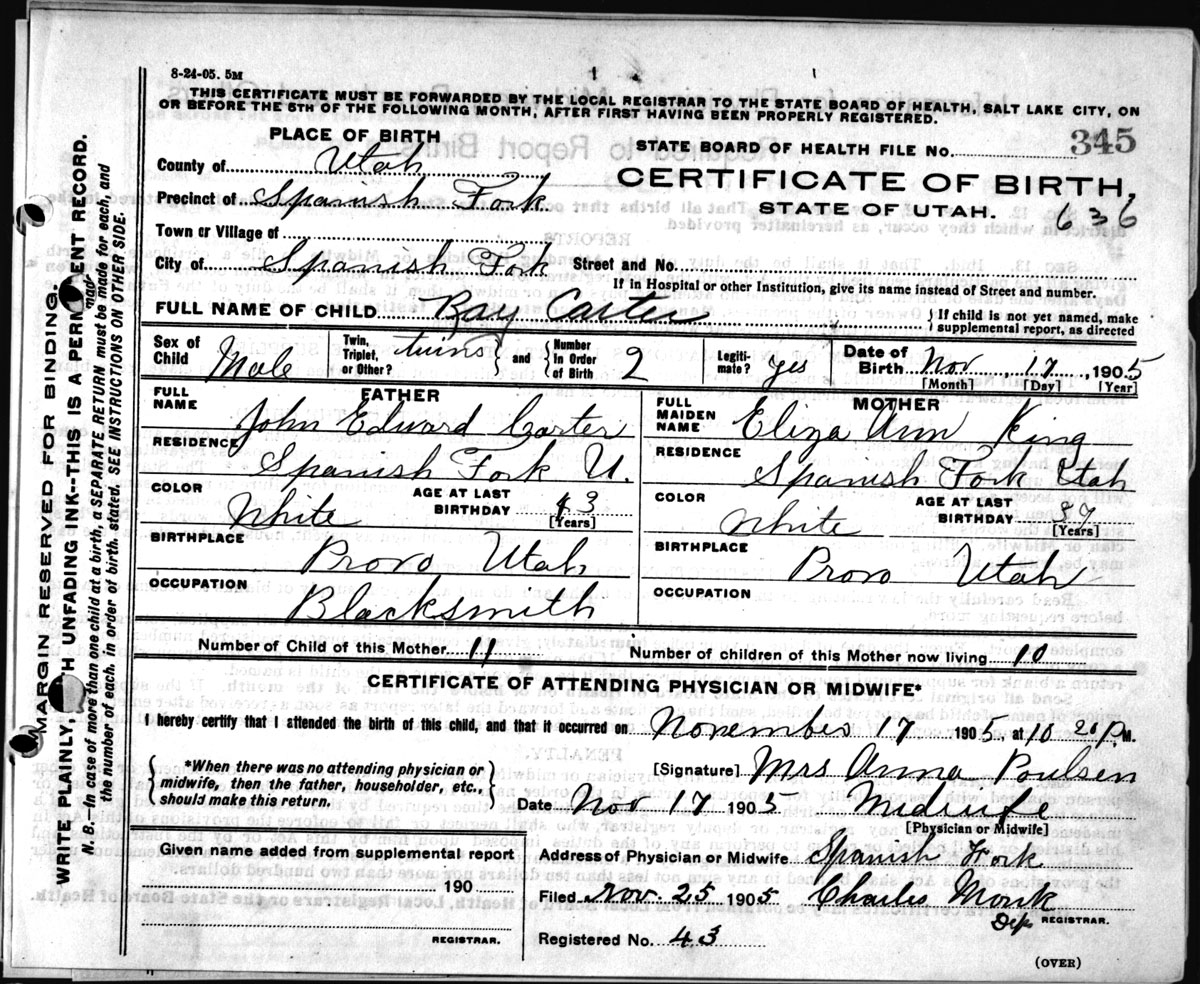 8-24-05. 5M
THIS CERTIFICATE MUST BE FORWARDED BY THE LOCAL REGISTRAR TO THE STATE BOARD OF HEALTH, SALT LAKE CITY, ON
OR BEFORE THE 5TH OF THE FOLLOWING MONTH, AFTER FIRST HAVING BEEN PROPERLY REGISTERED.
PLACE OF BIRTH
STATE BOARD OF HEALTH FILE No. 345
County of Utah
CERTIFICATE OF BIRTH,
Precinct of Spanish Fork
STATE OF UTAH. 636
Town or Village of
City of Spanish Fork Street and No.
If in Hospital or other Institution, give its name instead of Street and number.
FULL NAME OF CHILD Ray Carter { If child is not yet named, make supplemental report, as directed
Sex of Child Male Twin, Triplet, or Other? twins } and { Number In Order of Birth 2 Legiti-mate? yes Date of Birth Nov 17, 1905
[Month] [Day] [Year]
FATHER
MOTHER
FULL NAME John Edward Carter
FULL MAIDEN NAME Eliza Ann King
RESIDENCE Spanish Fork U.
RESIDENCE Spanish Fork Utah
COLOR White AGE AT LAST BIRTHDAY 43 [Years]
COLOR White AGE AT LAST BIRTHDAY 37 [Years]
BIRTHPLACE Provo Utah
BIRTHPLACE Provo Utah
OCCUPATION Blacksmith
OCCUPATION
Number of Child of this Mother 11 Number of children of this Mother now living 10
CERTIFICATE OF ATTENDING PHYSICIAN OR MIDWIFE*
I hereby certify that I attended the birth of this child, and that it occurred on November 17 1905, at 10 20 P. M.
{ *When there was no attending physician or midwife, then the father, householder, etc., should make this return. }
[Signature] Mrs Anna Poulsen
Date Nov 17 1905 Midwife
[Physician or Midwife]
Given name added from supplemental report
190
REGISTRAR.
Address of Physician or Midwife Spanish Fork
Filed Nov. 25 1905 Charles Monk
Dep REGISTRAR.
Registered No. 43
(OVER)
MARGIN RESERVED FOR BINDING.
WRITE PLAINLY, WITH UNFADING INK--THIS IS A PERMANENT RECORD.
N. B.—In case of more than one child at a birth, a SEPARATE RETURN must be made for each, and
the number of each, in order of birth, stated. SEE INSTRUCTIONS ON OTHER SIDE.